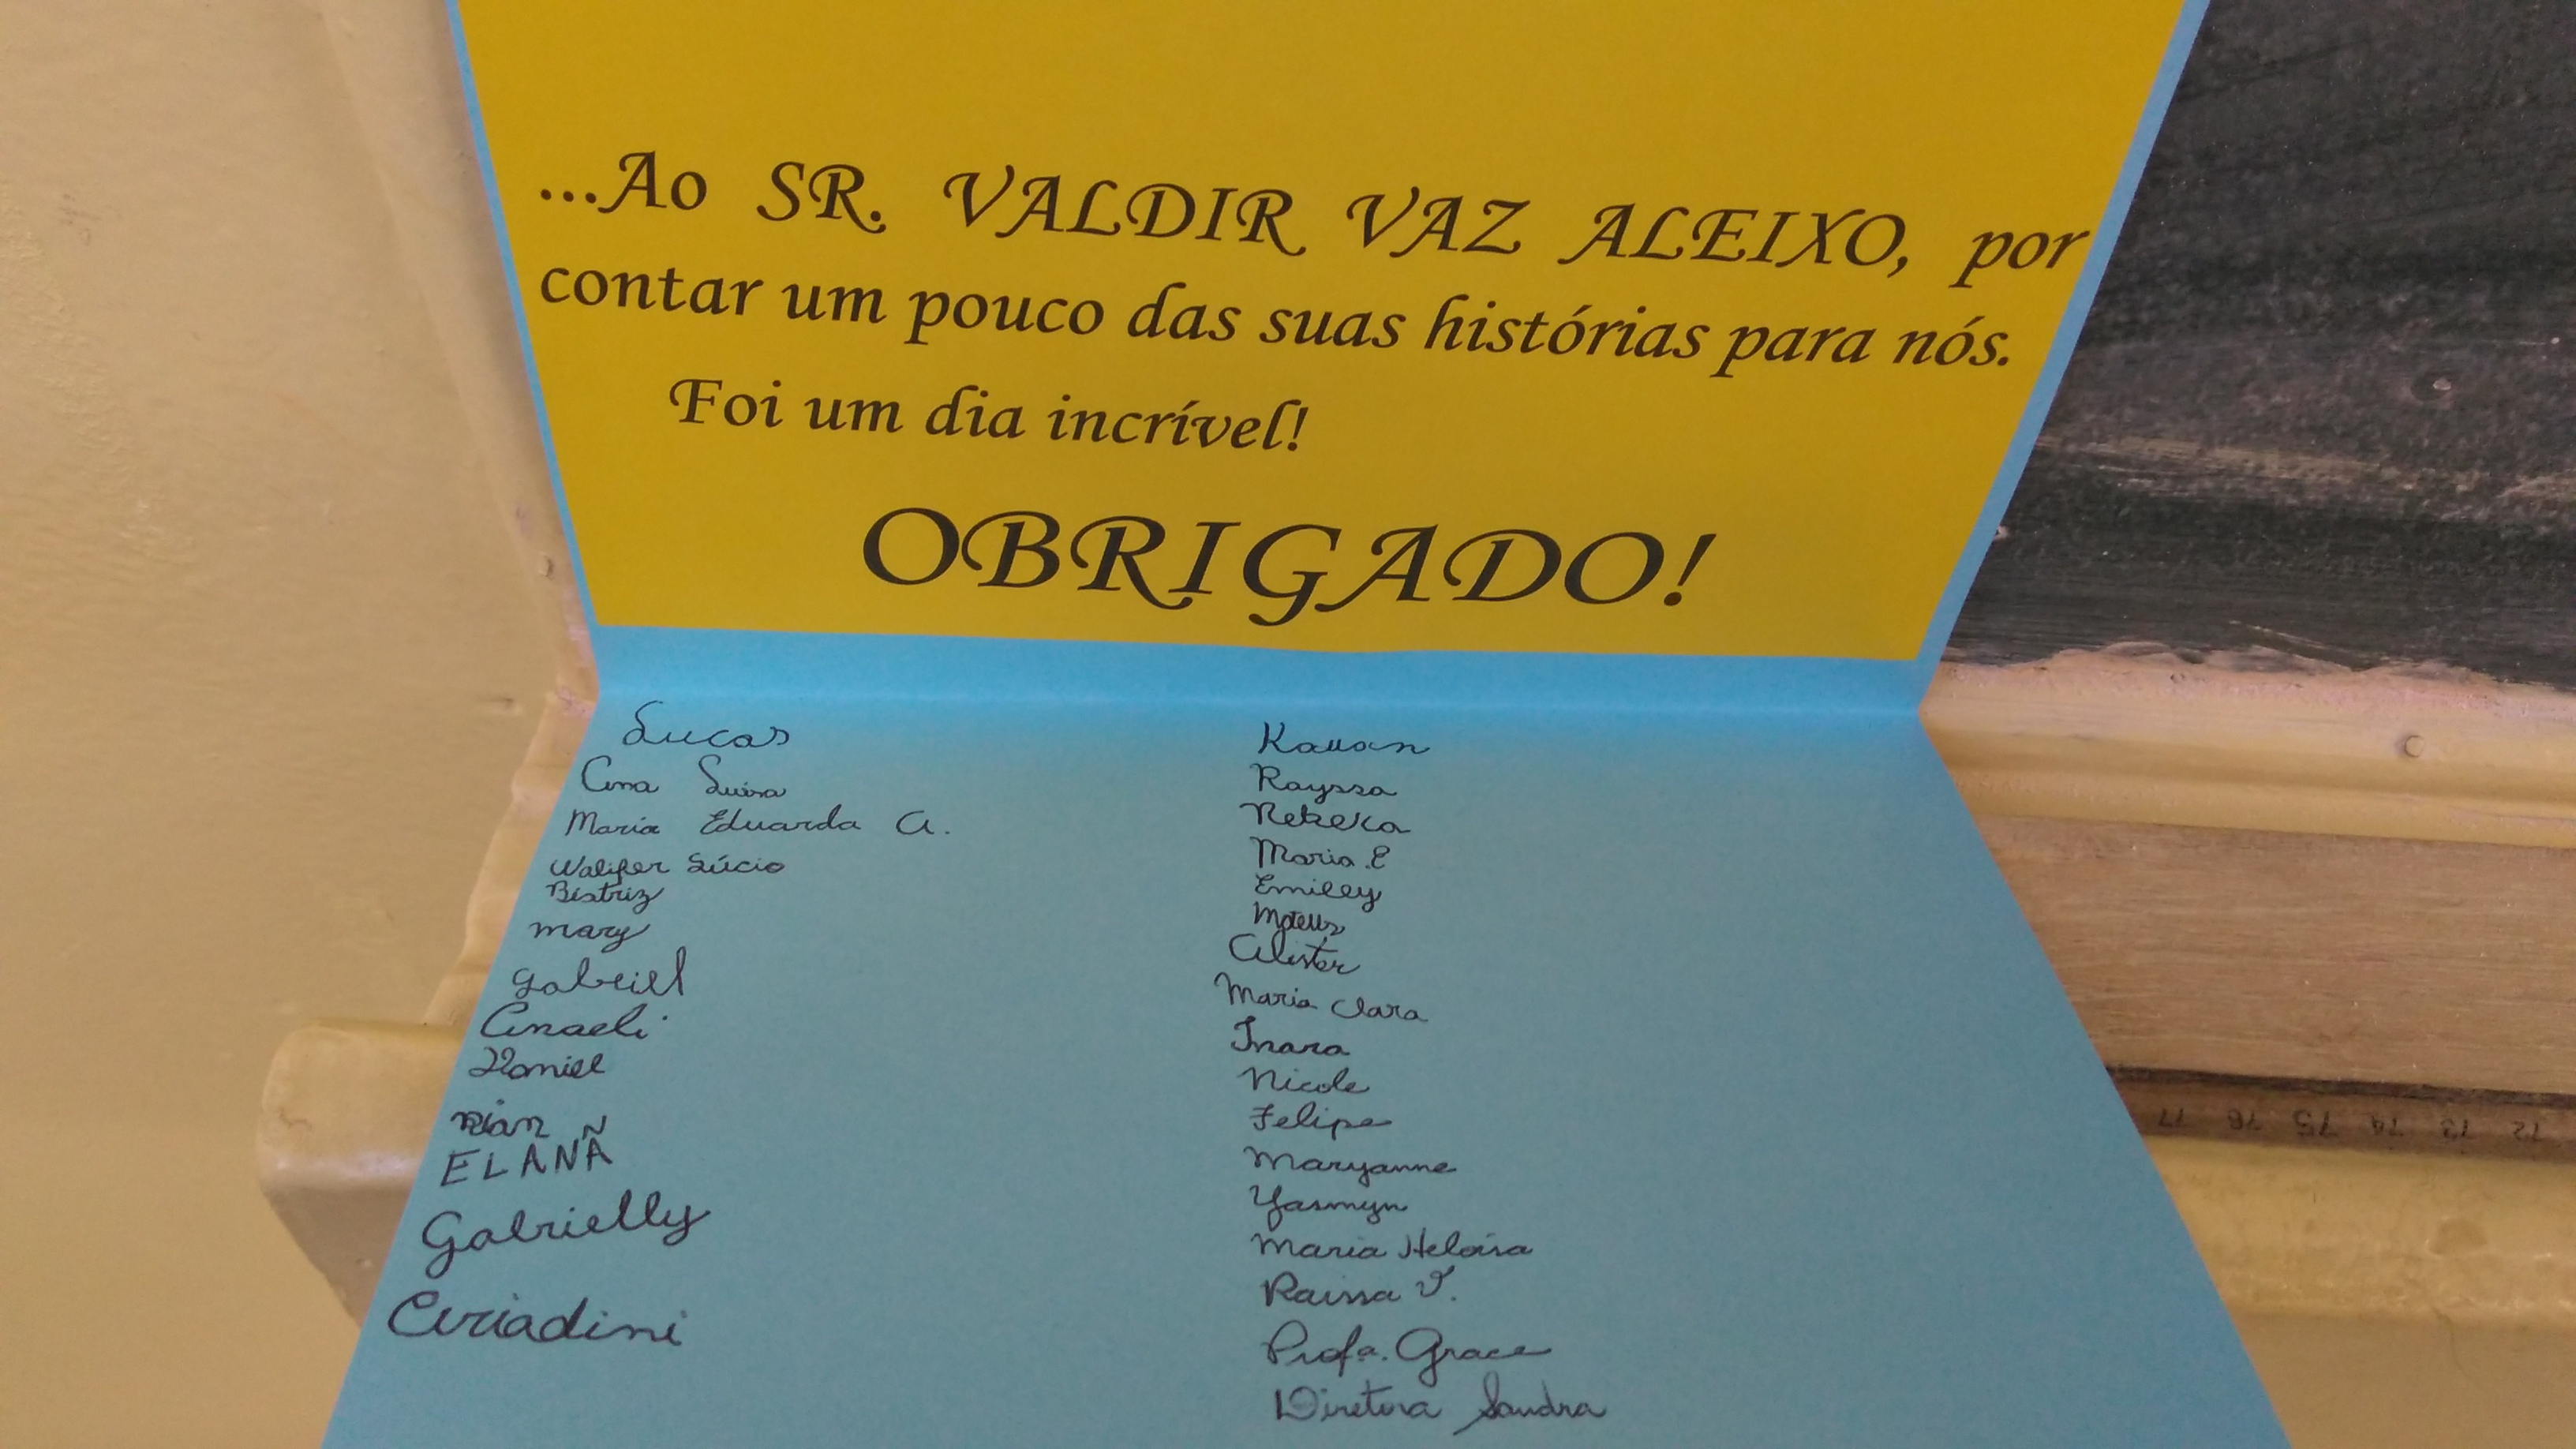 ...Ao SR. VALDIR VAZ ALEIXO, por
contar um pouco das suas histórias para nós.
Foi um dia incrível!
OBRIGADO!
Lucas
Ana Luisa
Maria Eduarda A.
Walifer Lúcio
Beatriz
mary
gabriel
Anaeli
Daniel
rian
ELANÃ
Gabrielly
Ariadini
Kauan
Rayssa
Rebeka
Maria E
Emilly
Mateus
Alister
Maria Clara
Inara
Nicole
Felipe
Maryanne
Yasmyn
Maria Heloísa
Raissa V.
Profa. Grace
Diretora Sandra
77 76 75 74 73 72